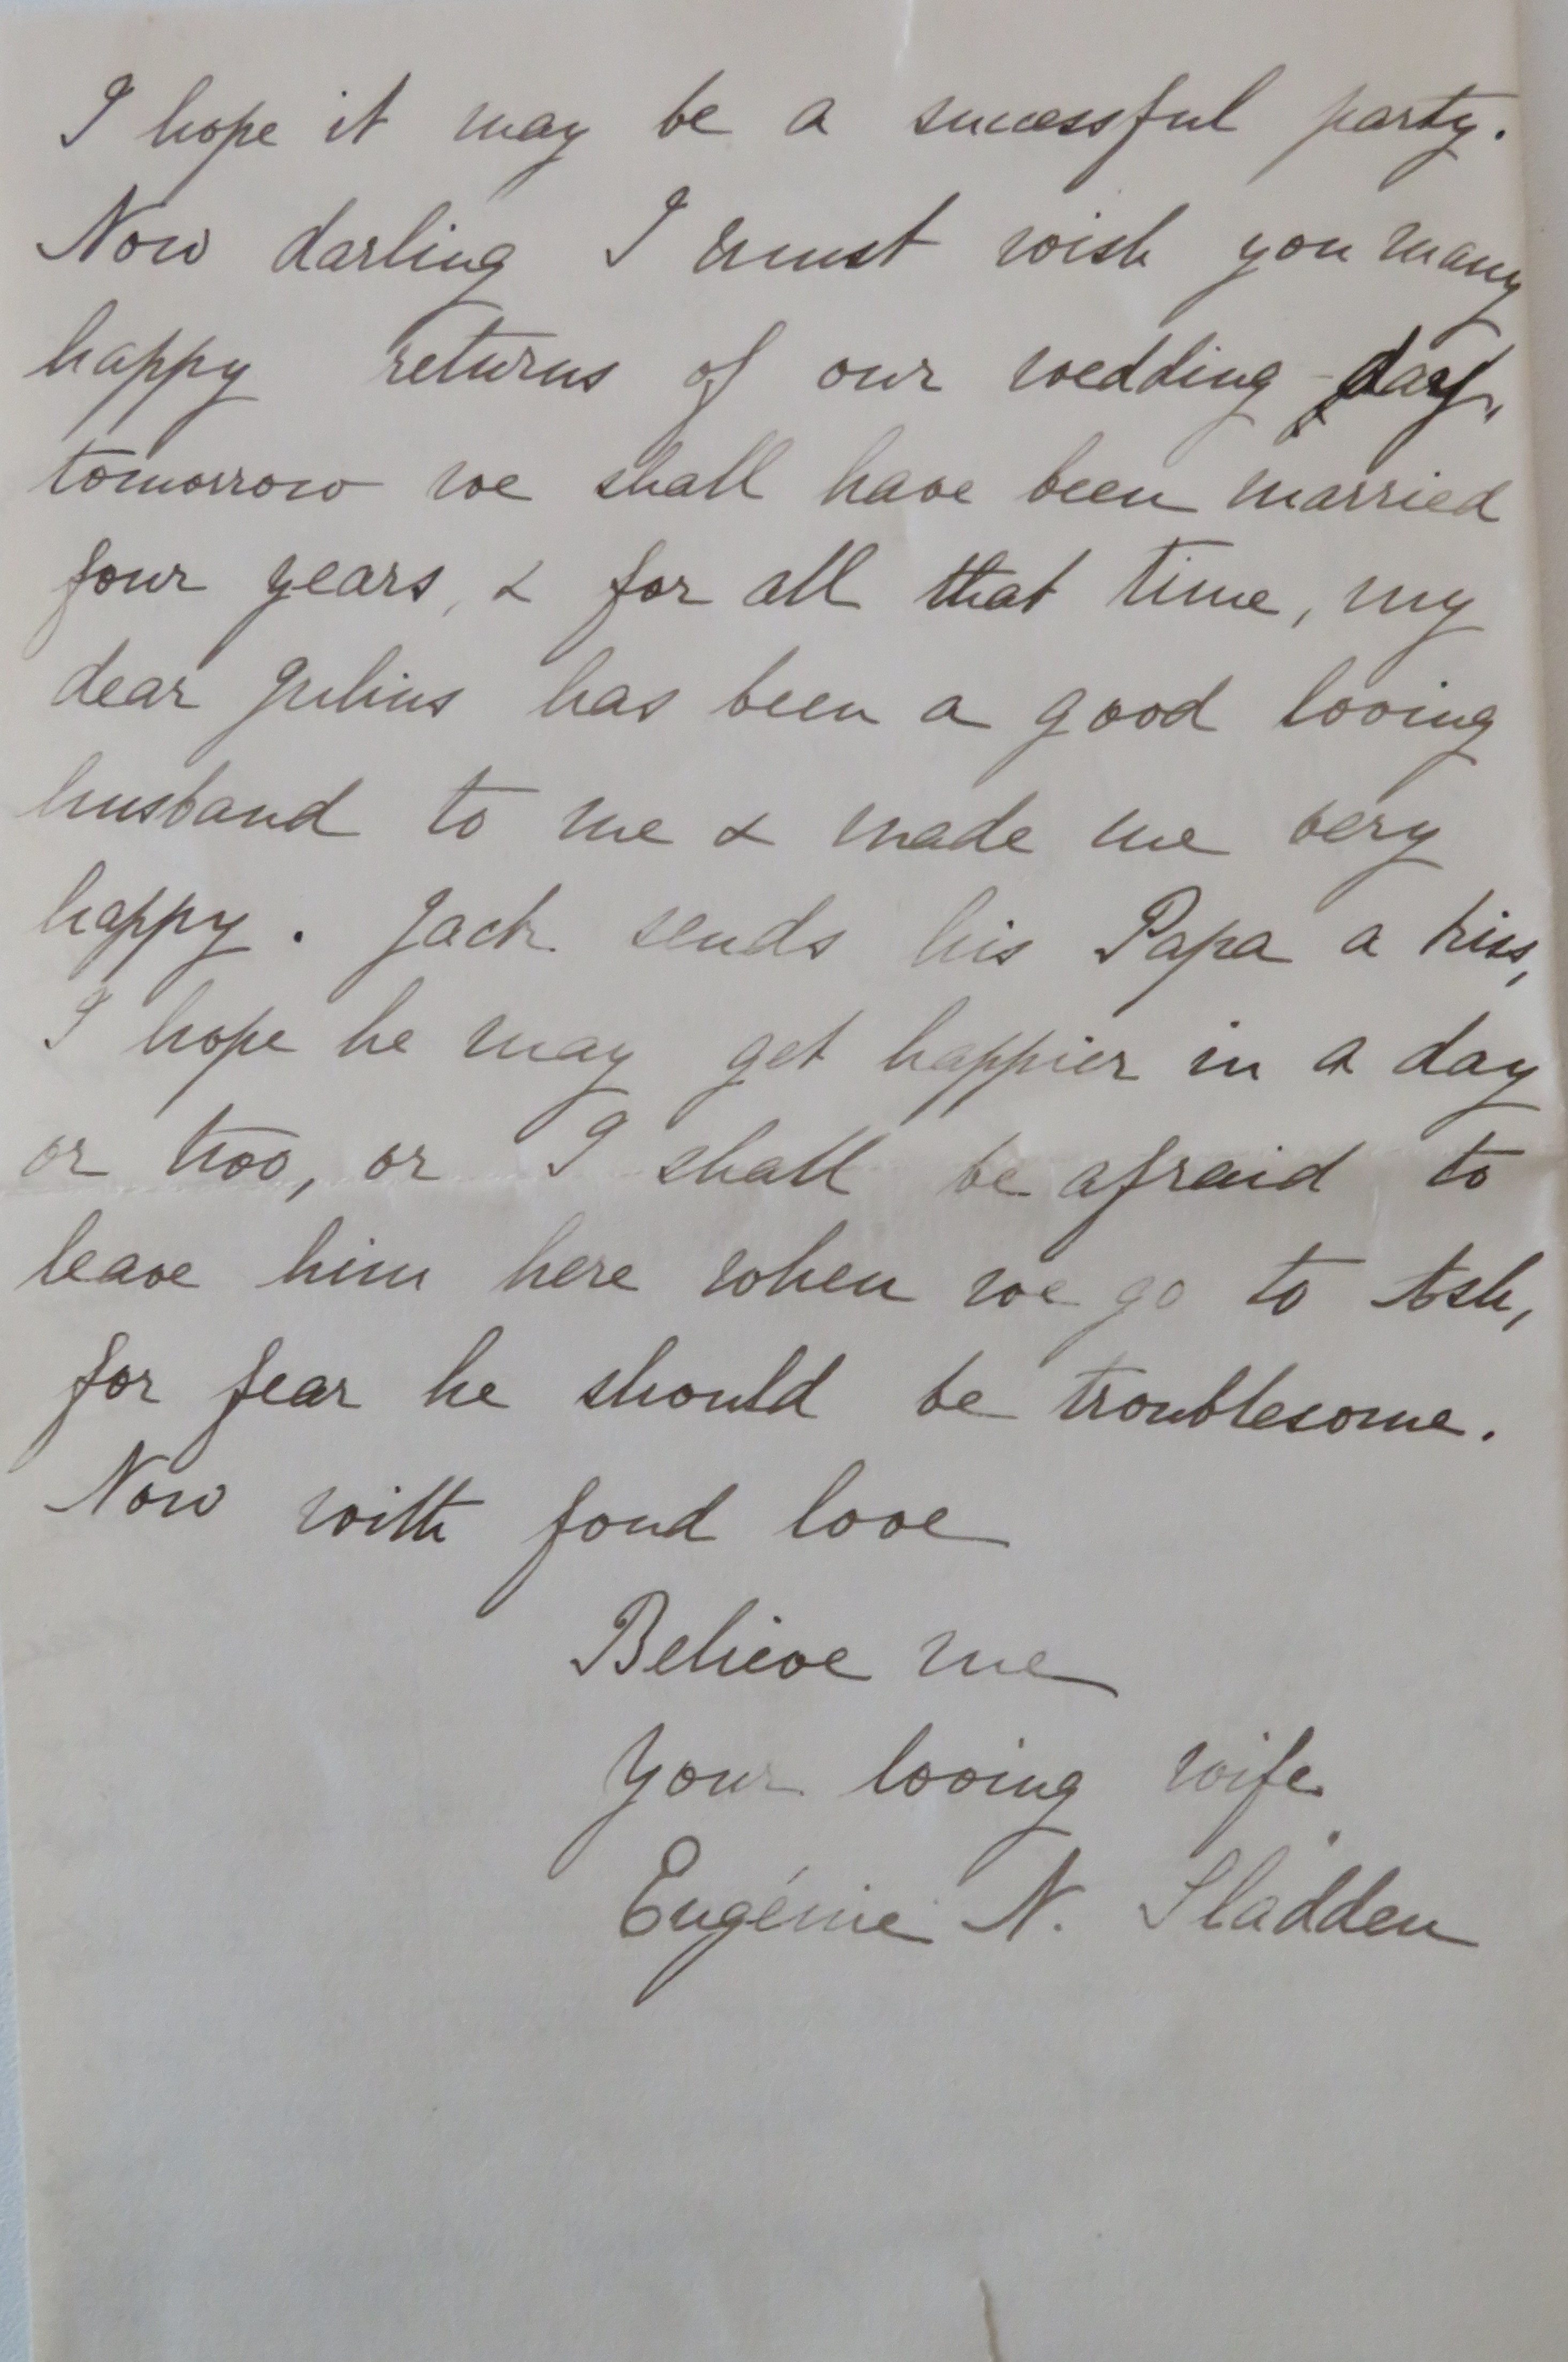 I hope it may be a successful party.
Now darling I must wish you many
happy returns of our wedding-day,
tomorrow we shall have been married
four years, & for all that time, my
dear Julius has been a good loving
husband to me & made me very
happy. Jack sends his Papa a kiss,
I hope he may get happier in a day
or two, or I shall be afraid to
leave him here when we go to Ash,
for fear he should be troublesome.
Now with fond love
Believe me
your loving wife
Eugénie N. Sladden